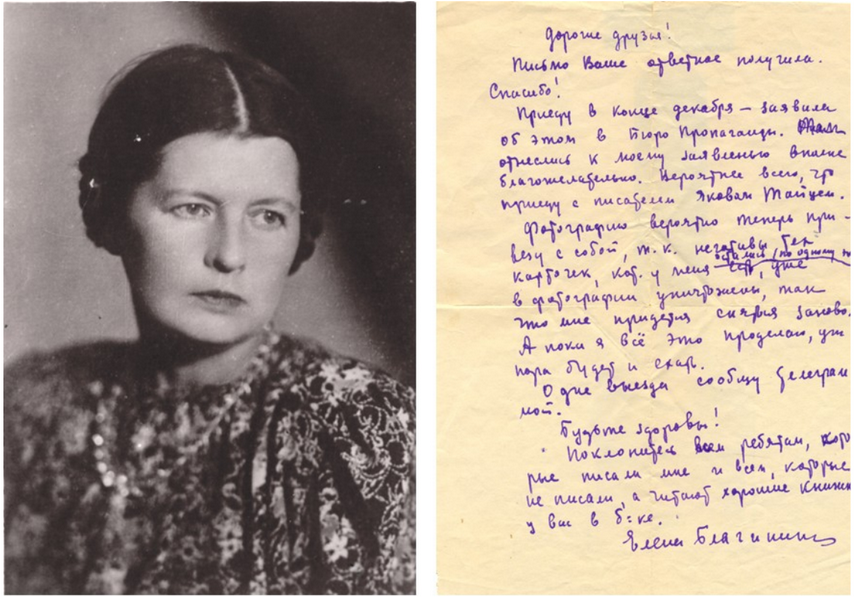 Дорогие друзья!
Письмо Ваше ответное получила.
Спасибо!
Приеду в конце декабря – заявила
об этом в Бюро Пропаганды. Там
отнеслись к моему заявленью вполне
благожелательно. Вероятнее всего, что
приеду с писателем Яковом Тайцем.
Фотографию вероятно теперь при-
везу с собой, т.к. негативы тех
остались (по одному
карточек, кот. у меня есть, уже
в фотографии уничтожены, так
что мне придётся сняться заново.
А пока я всё это проделаю, уж
пора будет и ехать.
О дне выезда сообщу телеграм
мой.
Будьте здоровы!
Поклонитесь всем ребятам, кото
рые писали мне и всем, которые
не писали, а читают хорошие книжки
у вас в б-ке.
Елена Благинина